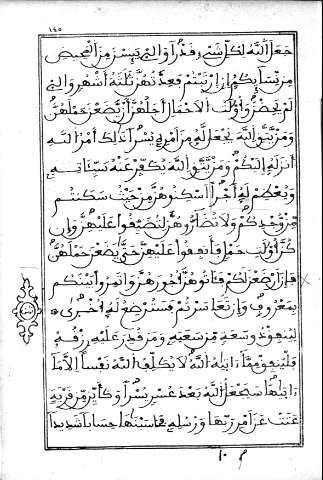 ١٤٥
جعل الله لكل شىء قدرا والئ يئسن من المحيض
من نسائكم إن ارتبتم فعدتهن ثلثة أشهر والئ
لم يحضن وأولت الاحمال أجلهن أن يضعن حملهن
ومن يتق الله يجعل له من أمره يسرا ذلك أمر الله
أنزله إليكم ومن يتق الله يكفر عنه سيئاته
ويعظم له أجرا أسكنوهن من حيث سكنتم
من وجدكم ولا تضاروهن لتضيقوا عليهن وإن
كن أولت حمل فأنفقوا عليهن حتى يضعن حملهن
فإن أرضعن لكم فئاتوهن أجورهن واتمروا بينكم
بمعروف وإن تعاسرتم فسترضع له أخرى
لينفق ذو سعة من سعته ومن قدر عليه رزقه
فلينفق مما ءاتيه الله لا يكلف الله نفسا إلا ما
ءاتيها سيجعل الله بعد عسر يسرا وكأين من قرية
عتت عن أمر ربها ورسله فحاسبنها حسابا شديدا